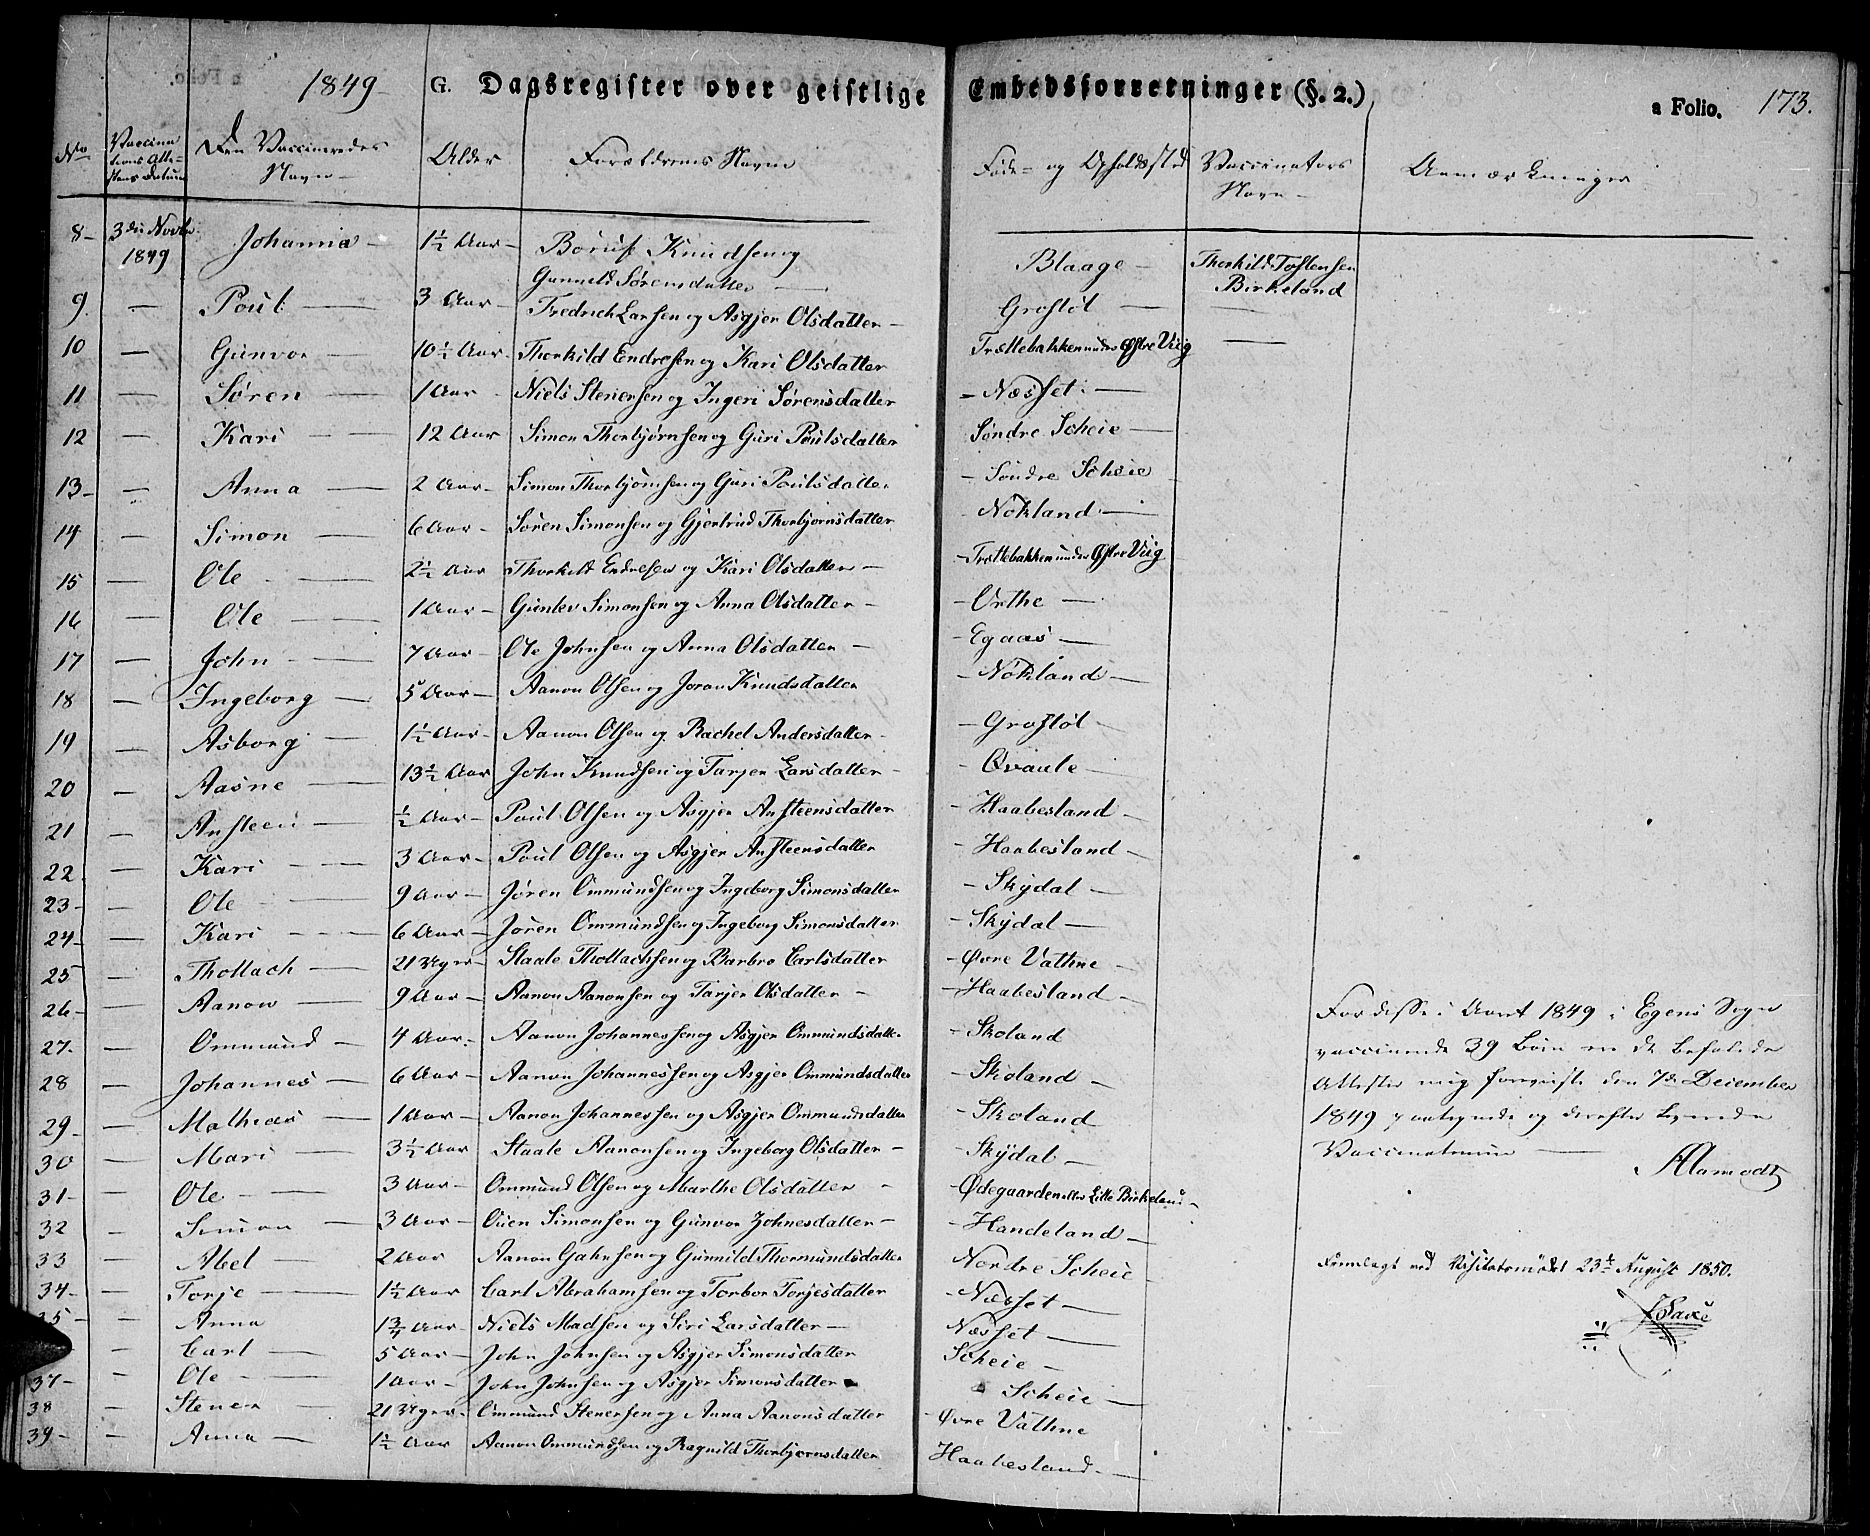 1849 G. Dagsregister over geistlige Embedsforretninger (§. 2.) a Folio. 173.
No Vaccinations Attestens Datum Den Vaccineredes Navn Alder Forældrenes Navne Føde- og Opholdssted Vaccinators Navn Anmærkninger
8 3die Novbr 1849 Johanna 1½ Aar Knudsen og Gunnild Sørensdatter Blaage Thorkild Tostensen Birkeland
9 — Poul 3 Aar Fredrich Larsen og Asgjer Olsdatter Grostøl —
10 — Gunvor 10½ Aar Thorkild Endresen og Kari Olsdatter Trættebakken under Østre Viig —
11 — Søren 1 Aar Niels Stenersen og Ingeri Sørensdatter Næsset
12 — Kari 12 Aar Simon Thorbjørnsen og Guri Poulsdatter Søndre Scheie
13 — Anna 2 Aar Simon Thorbjørnsen og Guri Poulsdatter Søndre Scheie
14 — Simon 6 Aar Søren Simonsen og Gjertrud Thorbjørnsdatter Nökland
15 — Ole 2½ Aar Thorkild Endresen og Kari Olsdatter Trættebakken under Østre Viig
16 — Ole 1 Aar Gunlev Simonsen og Anna Olsdatter Urthe
17 — John 7 Aar Ole Johnsen og Anna Olsdatter Egaas
18 — Ingeborg 5 Aar Aanon Olsen og Joran Knudsdatter Nökland
19 — Asborg 1½ Aar Aanon Olsen og Rachel Andersdatter Grostøl
20 — Aasne 13½ Aar John Knudsen og Tarjer Larsdatter
21 — Ansteen ½ Aar Poul Olsen og Asgjer Ansteensdatter Haabesland
22 — Kari 3 Aar Poul Olsen og Asgjer Ansteensdatter Haabesland
23 — Ole 9 Aar Jören Ommundsen og Ingeborg Simonsdatter Skÿdal
24 — Kari 6 Aar Jören Ommundsen og Ingeborg Simonsdatter Skÿdal
25 — Thollach 21 Uger Staale Thollachsen og Barbro Carlsdatter Øvre Vathne
26 — Aanon 9 Aar Aanon Aanonsen og Tarjer Olsdatter Haabesland
27 — Ommund 4 Aar Aanon Johannessen og Asgjer Ommundsdatter Skoland
28 — Johannes 6 Aar Aanon Johannessen og Asgjer Ommundsdatter Skoland
29 — Mathias 1 Aar Aanon Johannessen og Asgjer Ommundsdatter Skoland
30 — Mari 3½ Aar Staale Aanonsen og Ingeborg Olsdatter Skÿdal
31 — Ole 3 Aar Ommund Olsen og Marthe Olsdatter Ødegaarden eller Lille Birkeland
32 — Simon 3 Aar Ouen Simonsen og Gunvor Johnesdatter Handeland
33 — Abel 2 Aar Aanon Gahrsen og Gunnild Thormundsdatter Nordre Scheie
34 — Torje 1½ Aar Carl Abrahamsen og Torbor Torjesdatter Næsset
35 — Anna 1¾ Aar Niels Madsen og Siri Larsdatter Næsset
— Carl 5 Aar John Johnsen og Asgjer Simonsdatter Scheie
37 — Ole 1 Aar John Johnsen og Asgjer Simonsdatter Scheie
38 — Stener 21 Uger Ommund Stenersen og Anna Aanonsdatter Øvre Vathne
39 — Anna 1½ Aar Aanon Ommundsen og Ragnild Thorbjørnsdatter Haabesland
For disse i Aaret 1849 i Egens Sogn
vaccinerede 39 Börn er de befalede
Attester mig foreviste den 7de December
1849 og derefter
Vaccinatricen
AAamodt
Fremlagt ved Visitatsmödet 23de August 1850.